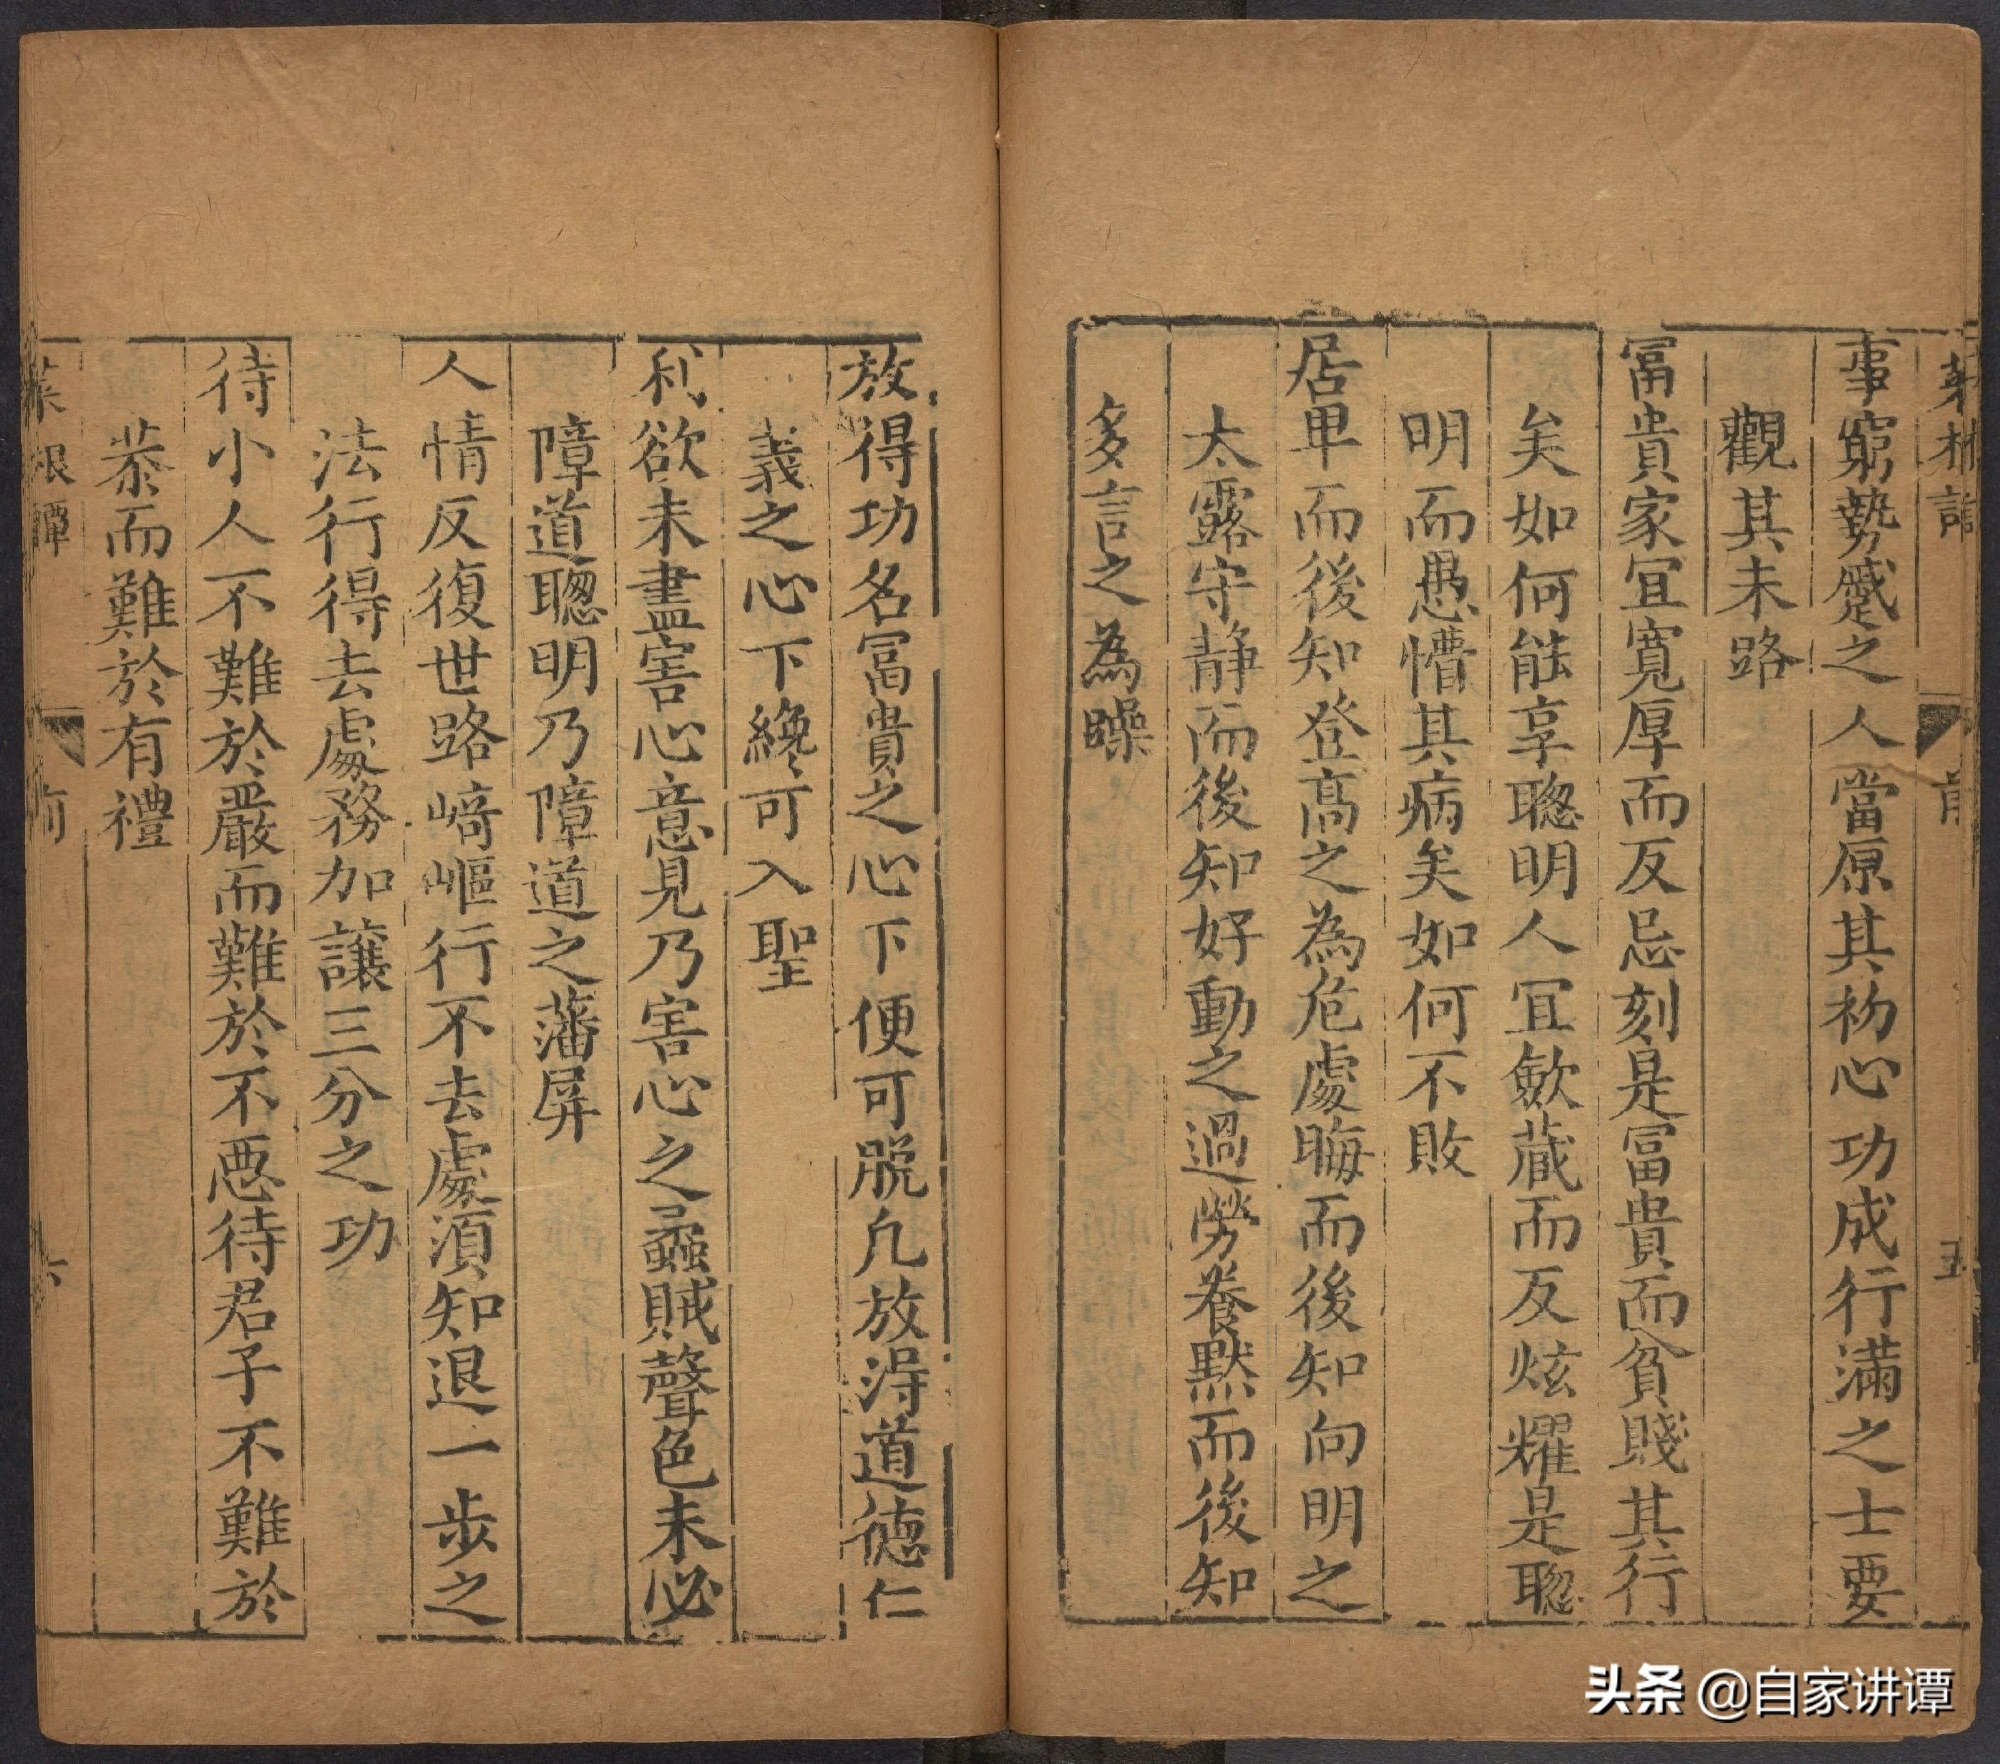 事窮勢蹙之人當原其初心功成行滿之士要
觀其末路
冨貴家宜寛厚而反忌刻是冨貴而貧賤其行
矣如何能享聦明人宜歛藏而反炫耀是聦
明而愚懵其病矣如何不敗
居卑而後知登髙之為危處晦而後知向明之
太露守静而後知好動之過勞養黙而後知
多言之為躁
放得功名冨貴之心下便可脱凡放淂道德仁
義之心下纔可入聖
利欲未盡害心意見乃害心之蟊賊聲色未必
障道聦明乃障道之藩屏
人情反復世路崎嶇行不去處湏知退一步之
法行得去處務加讓三分之功
待小人不難於嚴而難於不惡待君子不難於
恭而難於有禮
菜根譚
前
六
头条 @自家讲谭